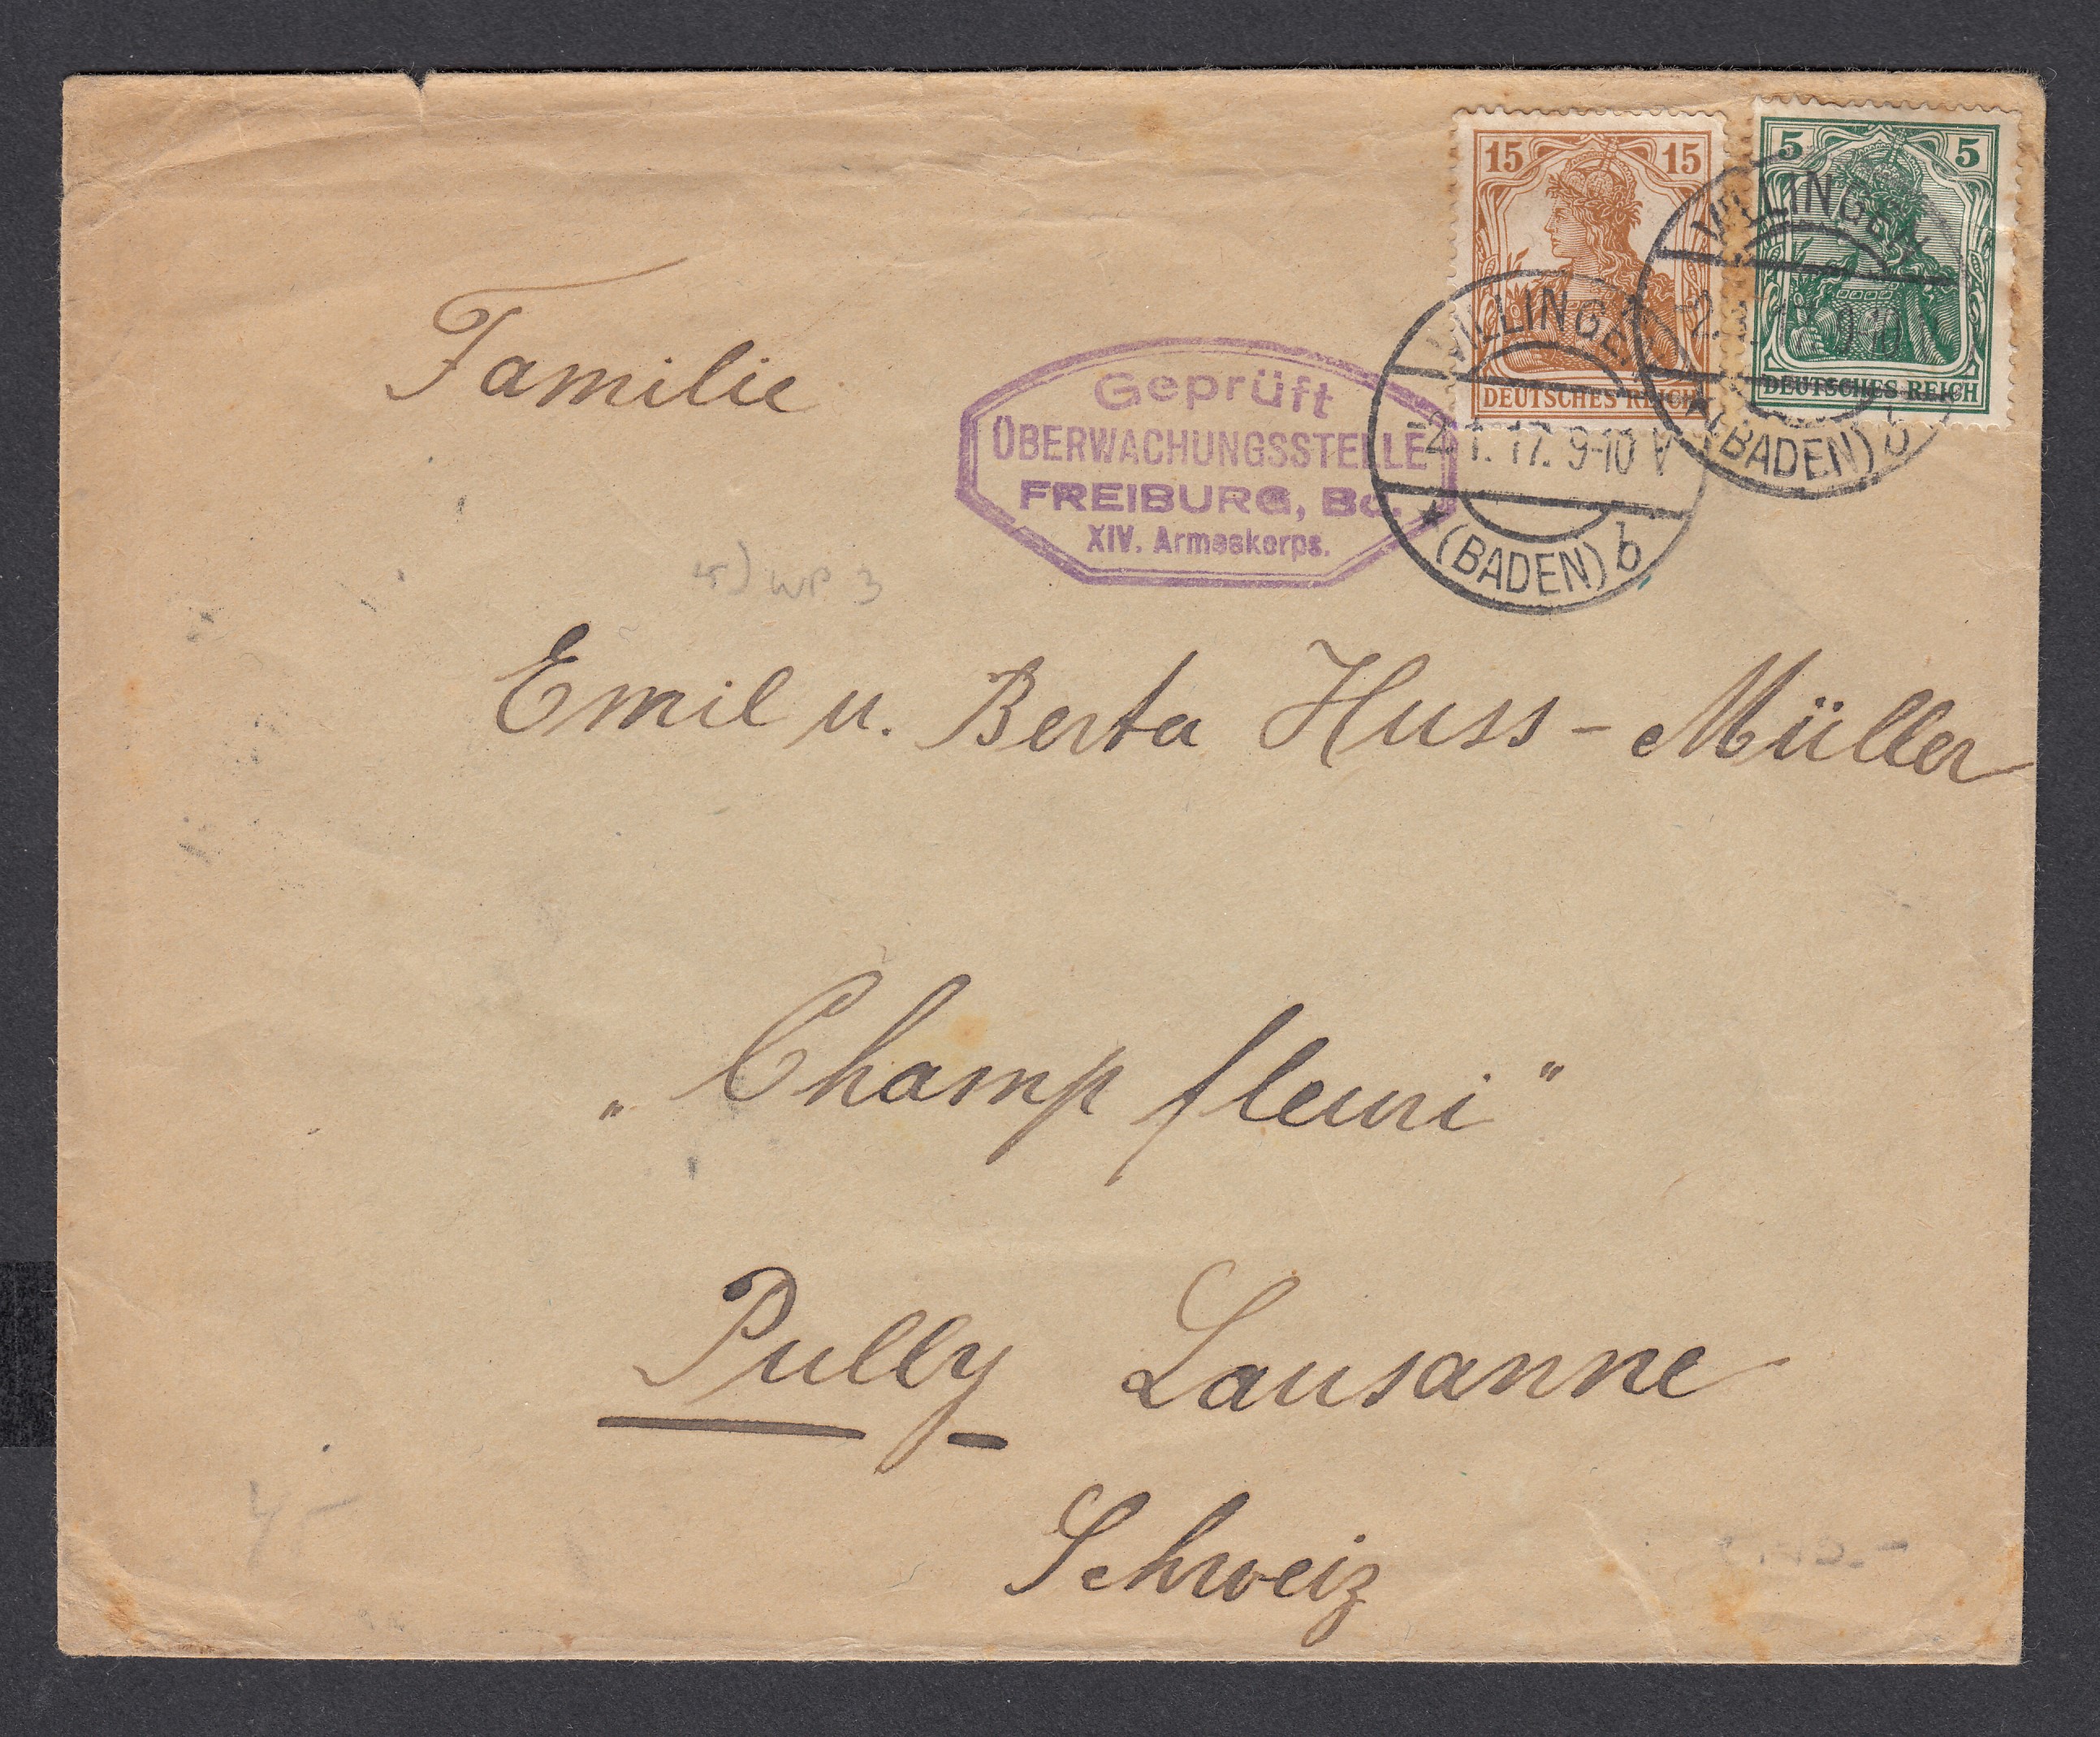 15 15
DEUTSCHES REICH
5 5
DEUTSCHES REICH
VILLINGEN
9-10
(BADEN) b
VILLINGEN
-2.1.17. 9-10 V
★ (BADEN) b
Geprüft
ÜBERWACHUNGSSTELLE
FREIBURG, Bd.
XIV. Armeekorps.
Familie
WP 3
Emil u. Berta Huss - Müller
„Champ fleuri"
Pully Lausanne
Schweiz